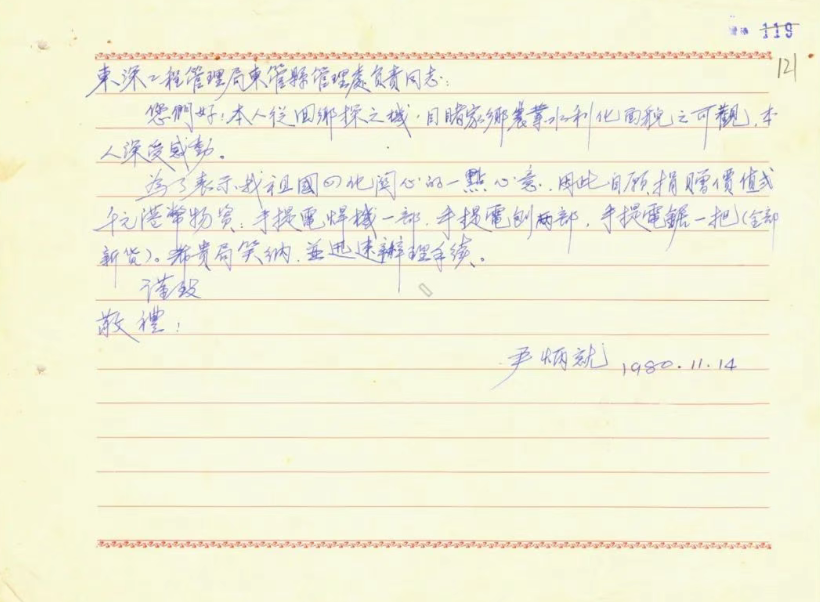 119
121
東深工程管理局東管縣管理處负责同志：
您們好！本人從回鄉探之機，目睹家鄉農業水利化面貌之可觀，本
人深受感動。
為了表示我祖國四化関心的一點心意，因此自願捐贈價值弍
千元港幣物资：手提電焊機一部，手提電刨两部，手提電鋸一把（全部
新货）。希贵局笑纳，並迅速辦理手续。
谨致
敬禮！
尹炳就 1980.11.14